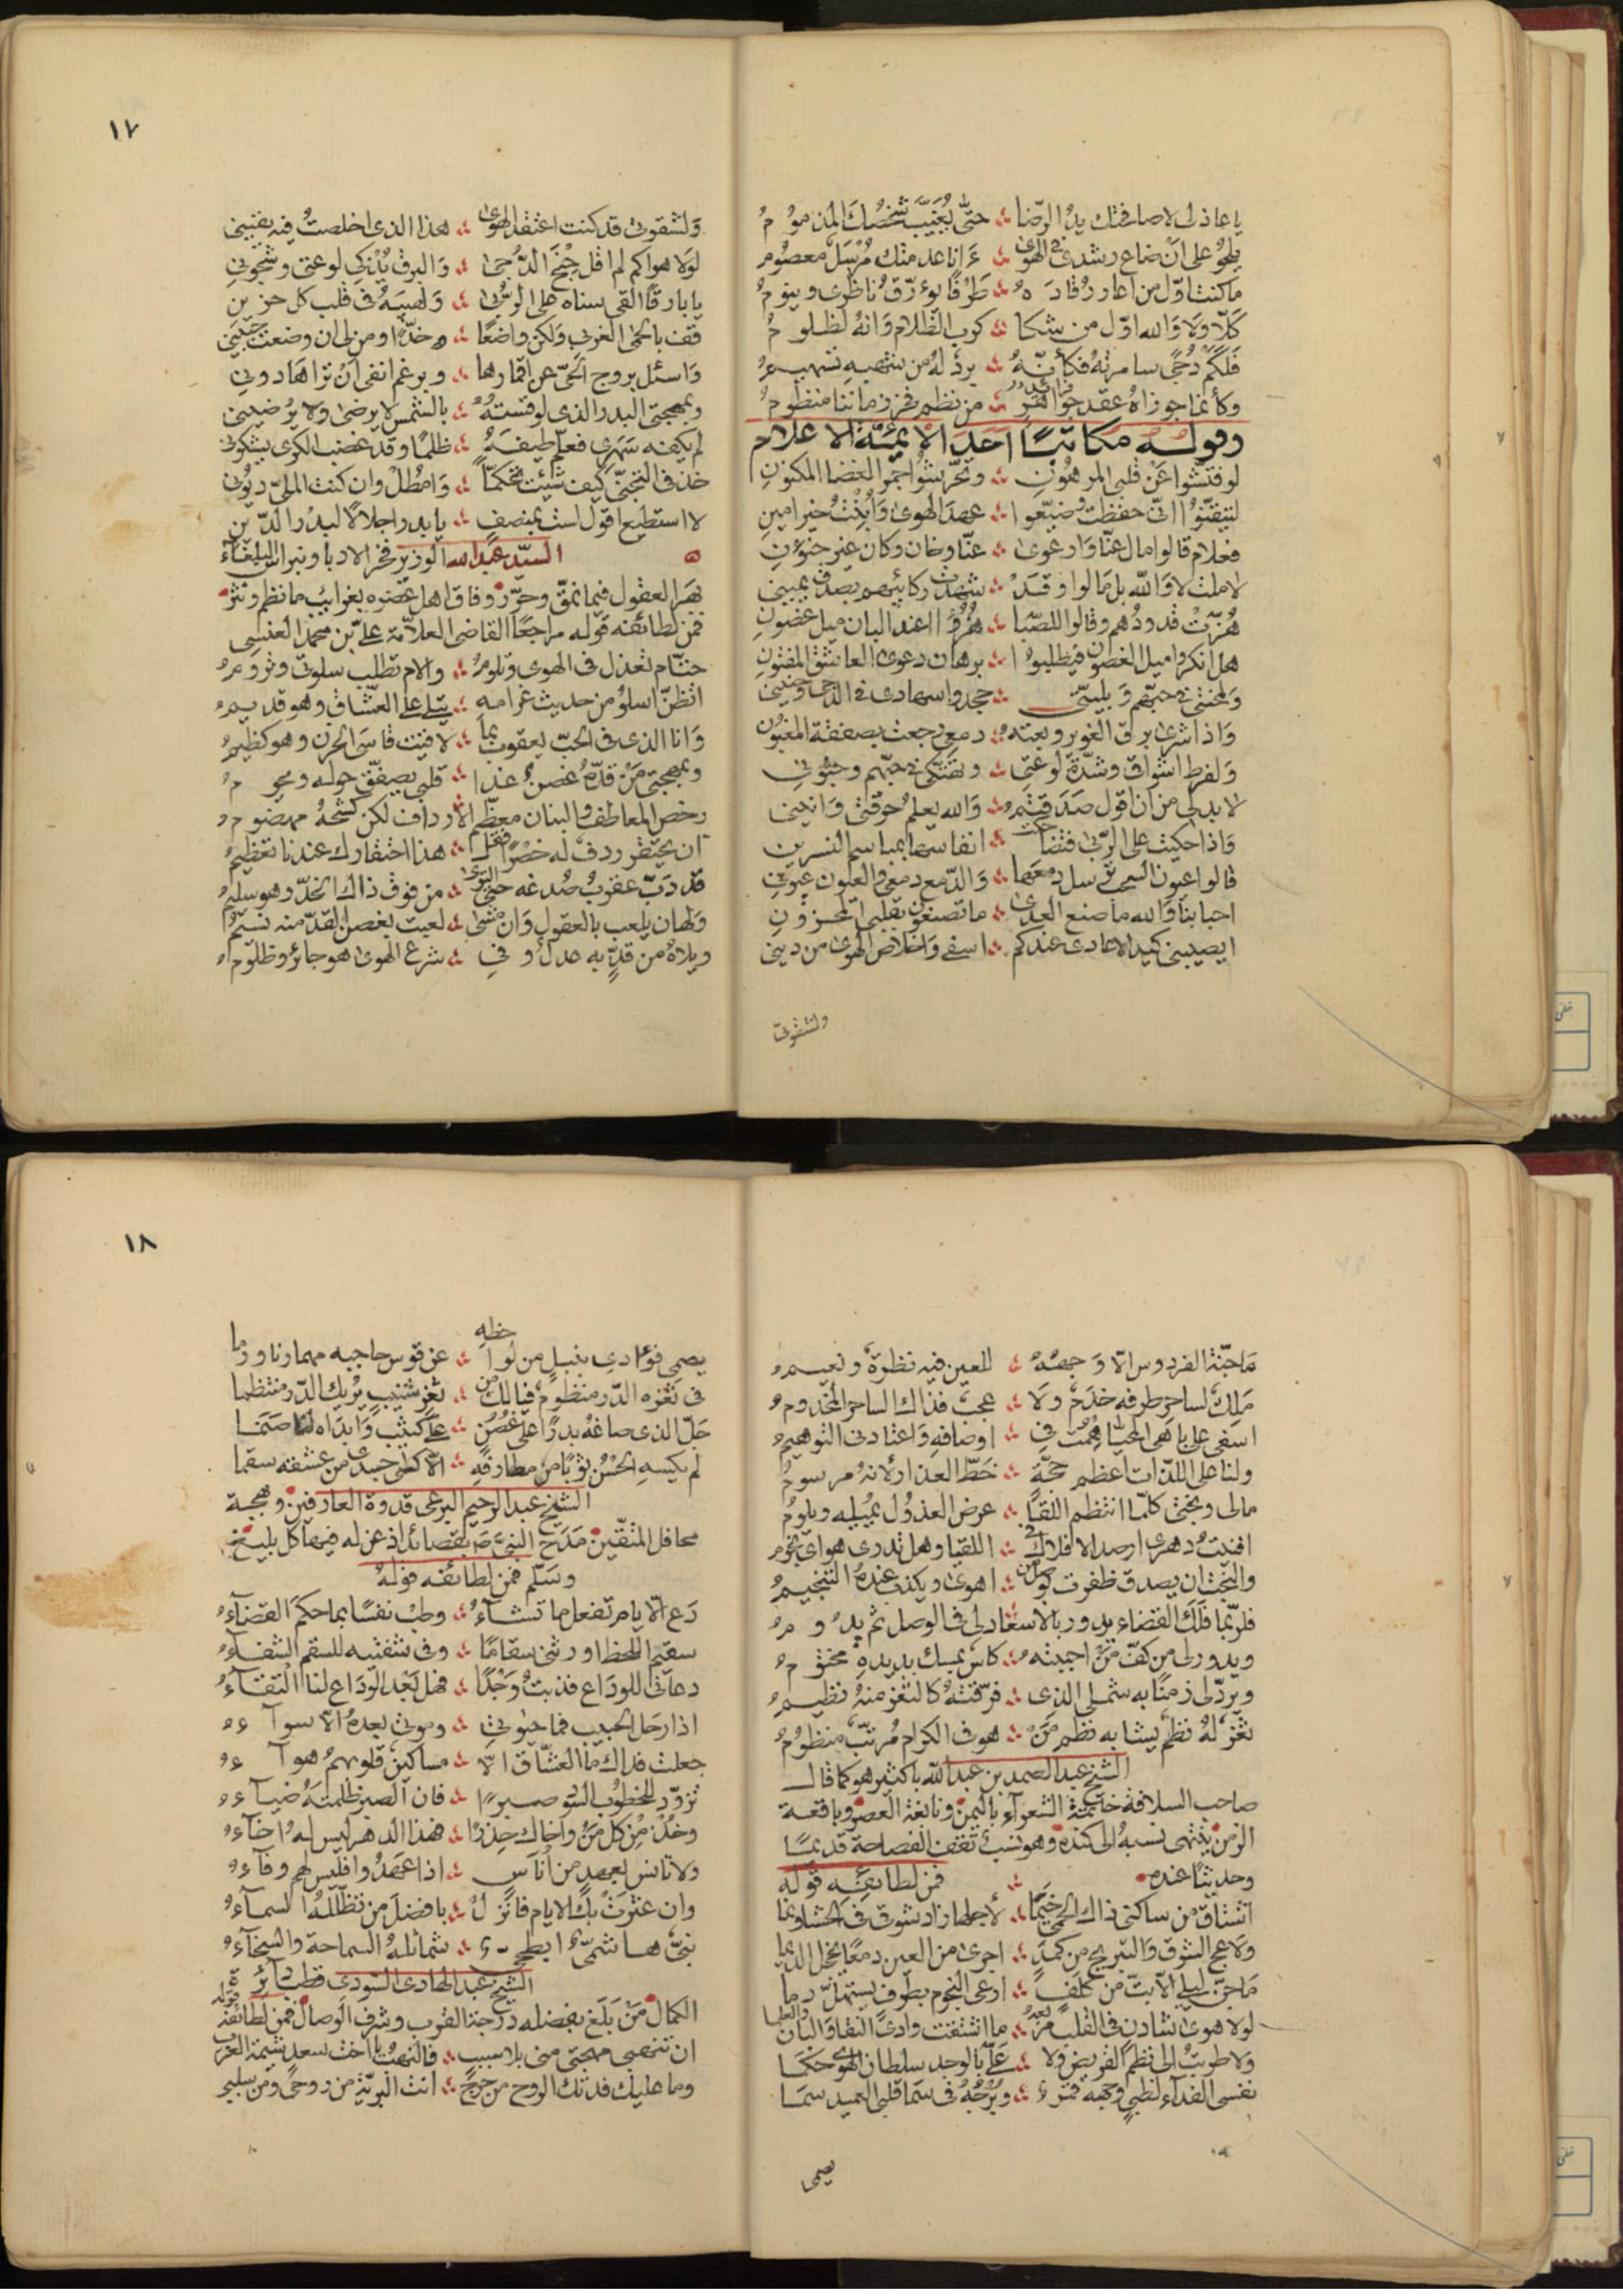 يا عاذلى لا صافحتك يد الرضا ؞ حتى يغيب شخصك المذموم
على ان ضاع رشدى فى الهوى ؞ وانا عدمتك مرسل معصوم
ما كنت اول من اعار رقاده ؞ طرفا يؤرق ناظرى وينوم
كلا ولا والله اول من شكا ؞ كرب الظلام وانه لظلوم
فلكم دجى سامرته فكأنه ؞
وكأنما جوزاه عقد جواهر ؞ من نظم فخر زماننا منظوم
وقوله مكاتبًا احد الائمة الاعلام
لو فتشوا عن قلبى المرهون ؞ جمر الغضا المكنون
لتيقنوا انى حفظت وضيعوا ؞ عهد الهوى وابنت خير امين
فعلام قالوا مال عنا وارعوى ؞ عنا وخان وكان غير خئون
لا ملت لا والله بل مالوا وقد ؞ شهدت ركائبهم بصدق يمينى
هزت قدودهم وقالوا للصبا ؞ هزؤا اعند البان ميل غضون
هل انكروا ميل الغصون فيطلبوا ؞ برهان دعوى العاشق المفتون
ولمحنتى فى حبهم وبليتى ؞ جحدوا سهادى فى الدجى وحنينى
واذا شرى برق الغوير وبعته ؞ دمعى رجعت بصفقة المغبون
ولفرط اشواقى وشدة لوعتى ؞ وتهتكى فى حبهم وجنونى
لا بد لى من ان اقول صدقتم ؞ والله يعلم حرقتى وانينى
واذا حكيت على الربى فتضاحكت ؞ انفاسها بمباسم النسرين
قالوا عيون السحب سل دمعها ؞ والدمع دمعى والعيون عيونى
احبابنا والله ما صنع العدى ؞ ما تصنعون بقلبى المحزون
ايصيبنى كيد الاعادى عندكم ؞ اسفى واخلاص الهوى من دينى
ولشقوتى
١٧
ولشقوتى قد كنت اعتقد الهوى ؞ هذا الذى اخلصت فيه يقينى
لولا هواكم لم اقل جنح الدجى ؞ والبرق يذكى لوعتى وشجونى
يا بارقا القى سناه على الربى ؞ ولهيبه فى قلب كل حزين
قف بالحمى الغربى ولكن واضعا ؞ خدا ومن لى ان وضعت جبينى
واسئل بروج الحى عن اقمارها ؞ وبرغم انفى ان تراها دونى
وبمهجتى البدر الذى لو قسته ؞ بالشمس لا يرضى ولا يرضينى
لم يكفه سهرى فعلم طيفه ؞ ظلما وقد غضب الكرى يشكونى
خذ فى التجنى كيف شئت تحكما ؞ وامطل وان كنت الملى ديونى
لا استطيع اقول لست بمنصف ؞ يا بدر اجلالا لبدر الدين
السيد عبد الله الوزير فخر الادبا ونبراس البلغاء
بهر العقول فيما نمق وحرر وفاق اهل عصره بغرائب ما نظم ونثر
فمن لطائفه قوله مراجعا القاضى العلامة على بن محمد العنسى
حتام تعذل فى الهوى وتلوم ؞ والام تطلب سلوتى وتروم
اتظن اسلو من حديث غرامه ؞ يتلى على العشاق وهو قديم
وانا الذى فى الحب يعقوب بما ؞ لاقيت قاسى الحزن وهو كظيم
وبمهجتى من قده غصن غدا ؞ قلبى يصفق حوله ويحوم
رخص المعاطف والبنان معظم الارداف لكن كشحه مهضوم
ان يحتقر ردف له خصرا فقل ؞ هذا احتقارك عندنا تعظيم
قد دب عقرب صدغه حتى التوى ؞ من فوق ذاك الخد وهو سليم
ولهان يلعب بالعقول وان مشى ؞ لعبت بغصن القد منه نسيم
ويلاه من قد به عدل وفى ؞ شرع الهوى هو جائر وظلوم
ما جنة الفردوس الا وجهه ؞ للعين فيه نظرة ونعيم
ملك لساحر طرفه خدم ولا ؞ عجب فذاك الساحر المخدوم
اسفى على باهى المحيا همت فى ؞ اوصافه واعتادنى التوهيم
ولنا على اللذات اعظم حجة ؞ خط العذار لانه مرسوم
مالى وبختى كلما انتظم اللقا ؞ عرض العذول بميله ويلوم
افنيت دهرى ارصد الافلاك فى ؞ اللقيا وهل تدرى هواى نجوم
والبخت ان يصدق ظفرت بوصل من ؞ اهوى ويكذب عنده التنجيم
فلربما فلك القضاء يدور بالاسعاد لى فى الوصل ثم يدوم
ويدور لى من كف من احببته ؞ كاس بمسك يديه مختوم
ويرد لى زمنا به شملى الذى ؞ فرقته كالثغر منه نظيم
ثغر له نظم يشابه نظم من ؞ هو فى الكرام مرتب منظوم
الشيخ عبد الصمد بن عبد الله باكثير هو كما قال
صاحب السلافة خاتمة الشعراء باليمن ونابغة العصر وباقعة
الزمن ينتهى نسبه الى كندة وهو نسب تقف الفصاحة قديمًا
وحديثًا عنده ؞ فمن لطائفه قوله
اشتاق من ساكنى ذاك الحمى خيما ؞ لاجلها زاد شوقى فى الحشا ونما
ولاعج الشوق والتبريح من كمد ؞ اجرى من العين دمعا يخجل الديما
ما جن ليلى الا بت من كلف ؞ ارعى النجوم بطرف يستهل دما
لولا هوى شادن فى القلب مرتعه ؞ ما اشتقت وادى النقا والبان والعلما
ولا طربت الى نظم القريض ولا ؞ على بالوجد سلطان الهوى حكما
نفسى الفداء لظبى وجهه قمر ؞ وبرجه فى سما قلبى العميد سما
يصمى
١٨
يصمى فؤادى بنبل من لواحظه ؞ عن قوس حاجبه مهما رنا ورما
فى ثغره الدر منظوم فيالك من ؞ ثغر شنيب يريك الدر منتظما
جل الذى صاغه بدرا على غصن ؞ على كثيب وابداه لنا صنما
لم يكسه الحسن ثوبا من مطارفه ؞ الا كسى جسدى من عشقه سقما
الشيخ عبد الرحيم البرعى قدوة العارفين وبهجة
محافل المتقين مدح النبى ص بقصائد اذعن له فيها كل بليغ
وسلم فمن لطائفه قوله
دع الايام تفعل ما تشاء ؞ وطب نفسا بما حكم القضاء
سقيم اللحظ اورثنى سقاما ؞ وفى شفتيه للسقم الشفاء
دعانى للوداع فذبت وجدا ؞ فهل بعد الوداع لنا التقاء
اذا رحل الحبيب فما حيوتى ؞ وموتى بعده الا سواء
جعلت فداك ما العشاق الا ؞ مساكين قلوبهم هواء
تزود للخطوب السود صبرا ؞ فان الصبر ظلمته ضياء
وخذ من كل من واخاك حذرا ؞ فهذا الدهر ليس له اخاء
ولا تانس بعهد من اناس ؞ اذا عهدوا فليس لهم وفاء
وان عثرت بك الايام فانزل ؞ بافضل من تظلله السماء
نبى هاشمى ابطحى ؞ شمائله السماحة والسخاء
الشيخ عبد الهادى السودى قطب دائرة
الكمال من بلغ بفضله درجة القرب وشرف الوصال فمن لطائفه قوله
ان تنهبى مهجتى منى بلا سبب ؞ فالنهب يا اخت سعد شيمة العرب
وما عليك فدتك الروح من حرج ؞ انت البرية من روحى ومن سلبى